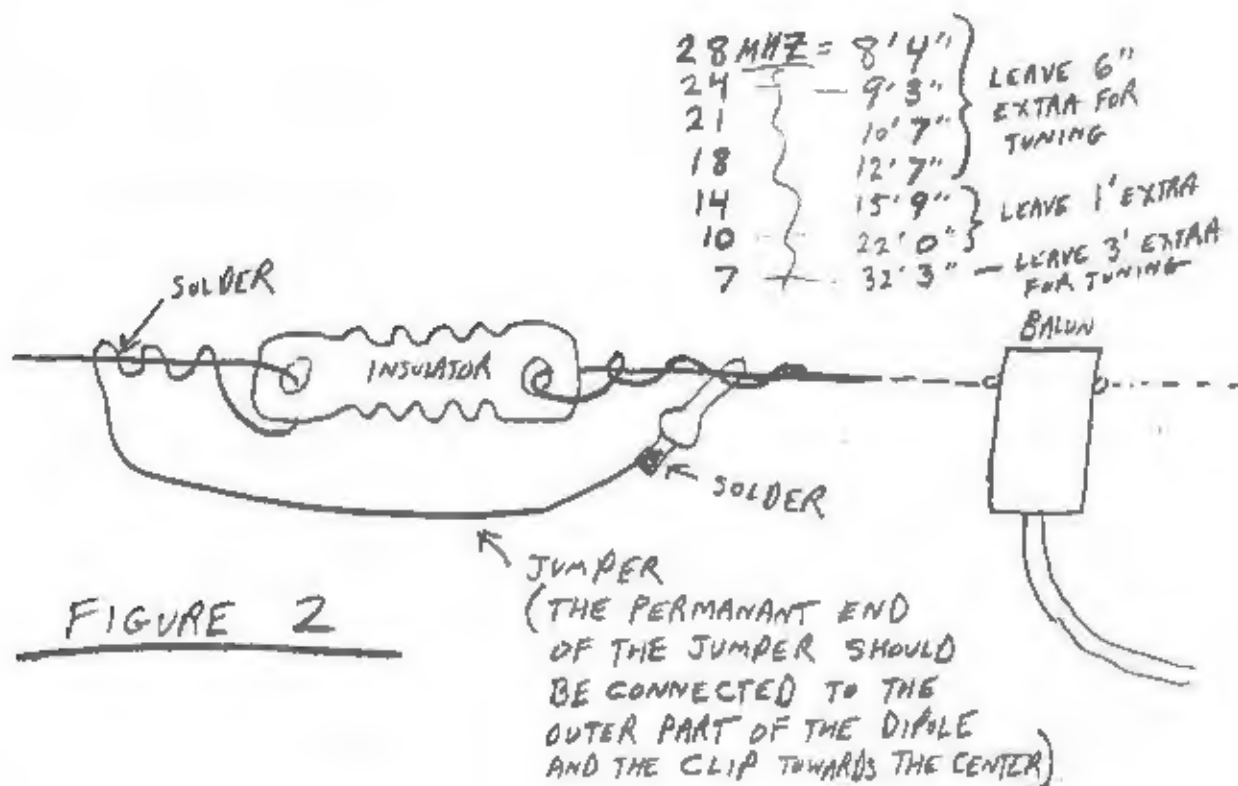 28 MHZ = 8'4"
24 9'3"
21 10'7"
18 12'7"
LEAVE 6"
EXTRA FOR
TUNING
14 15'9"
10 22'0"
LEAVE 1' EXTRA
7 32'3" — LEAVE 3' EXTRA
FOR TUNING
SOLDER
BALUN
INSULATOR
SOLDER
JUMPER
(THE PERMANANT END
OF THE JUMPER SHOULD
BE CONNECTED TO THE
OUTER PART OF THE DIPOLE
AND THE CLIP TOWARDS THE CENTER)
FIGURE 2